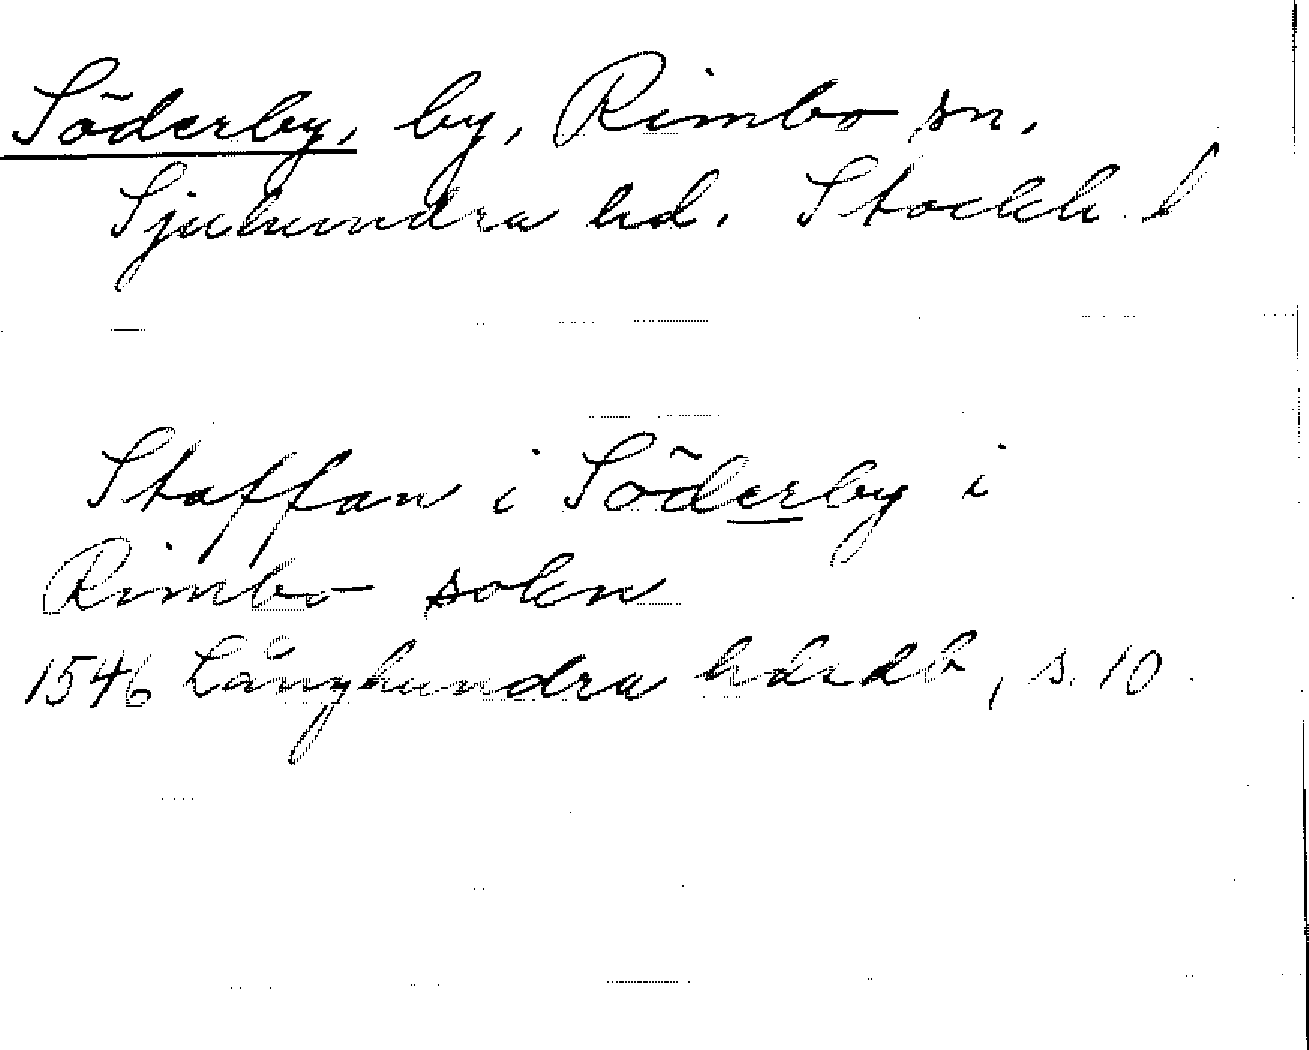 Söderby, by, Rimbo sn.
Sjuhundra hd. Stockh. l
Staffan i Söderby i
Rimbo sokn
1546 Långhundra hdrdb, s. 10.